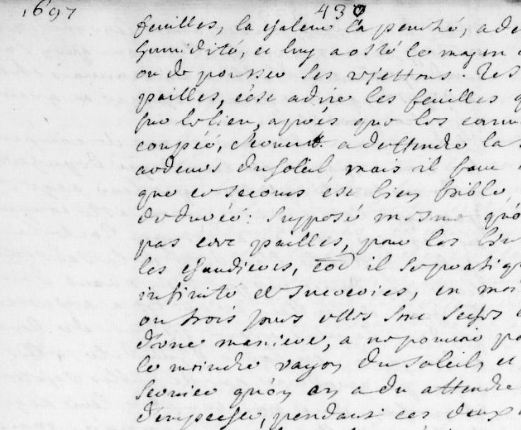 1697 430
feuilles, la chaleur la penetré, a de
humidité, et luy a osté le moyen
ou de pousser ses rejettons. Les
pailles, cest adire les feuilles q
sur le lieu, aprés que les cann
coupée, servent a deffendre la
ardeurs du Soleil, mais il faut
que ce secours est bien foible
de durée: Supposé mesme qu'o
pas ces pailles, pour les
les chaudieres, come il se pratiq
infinité de sucreries, en moi
ou trois jours elles sont seches
d'une maniere, a ne pouvoir pa
le moindre rayon du Soleil, et
service qu'on en a du attendre
d'empescher, pendant ces deux